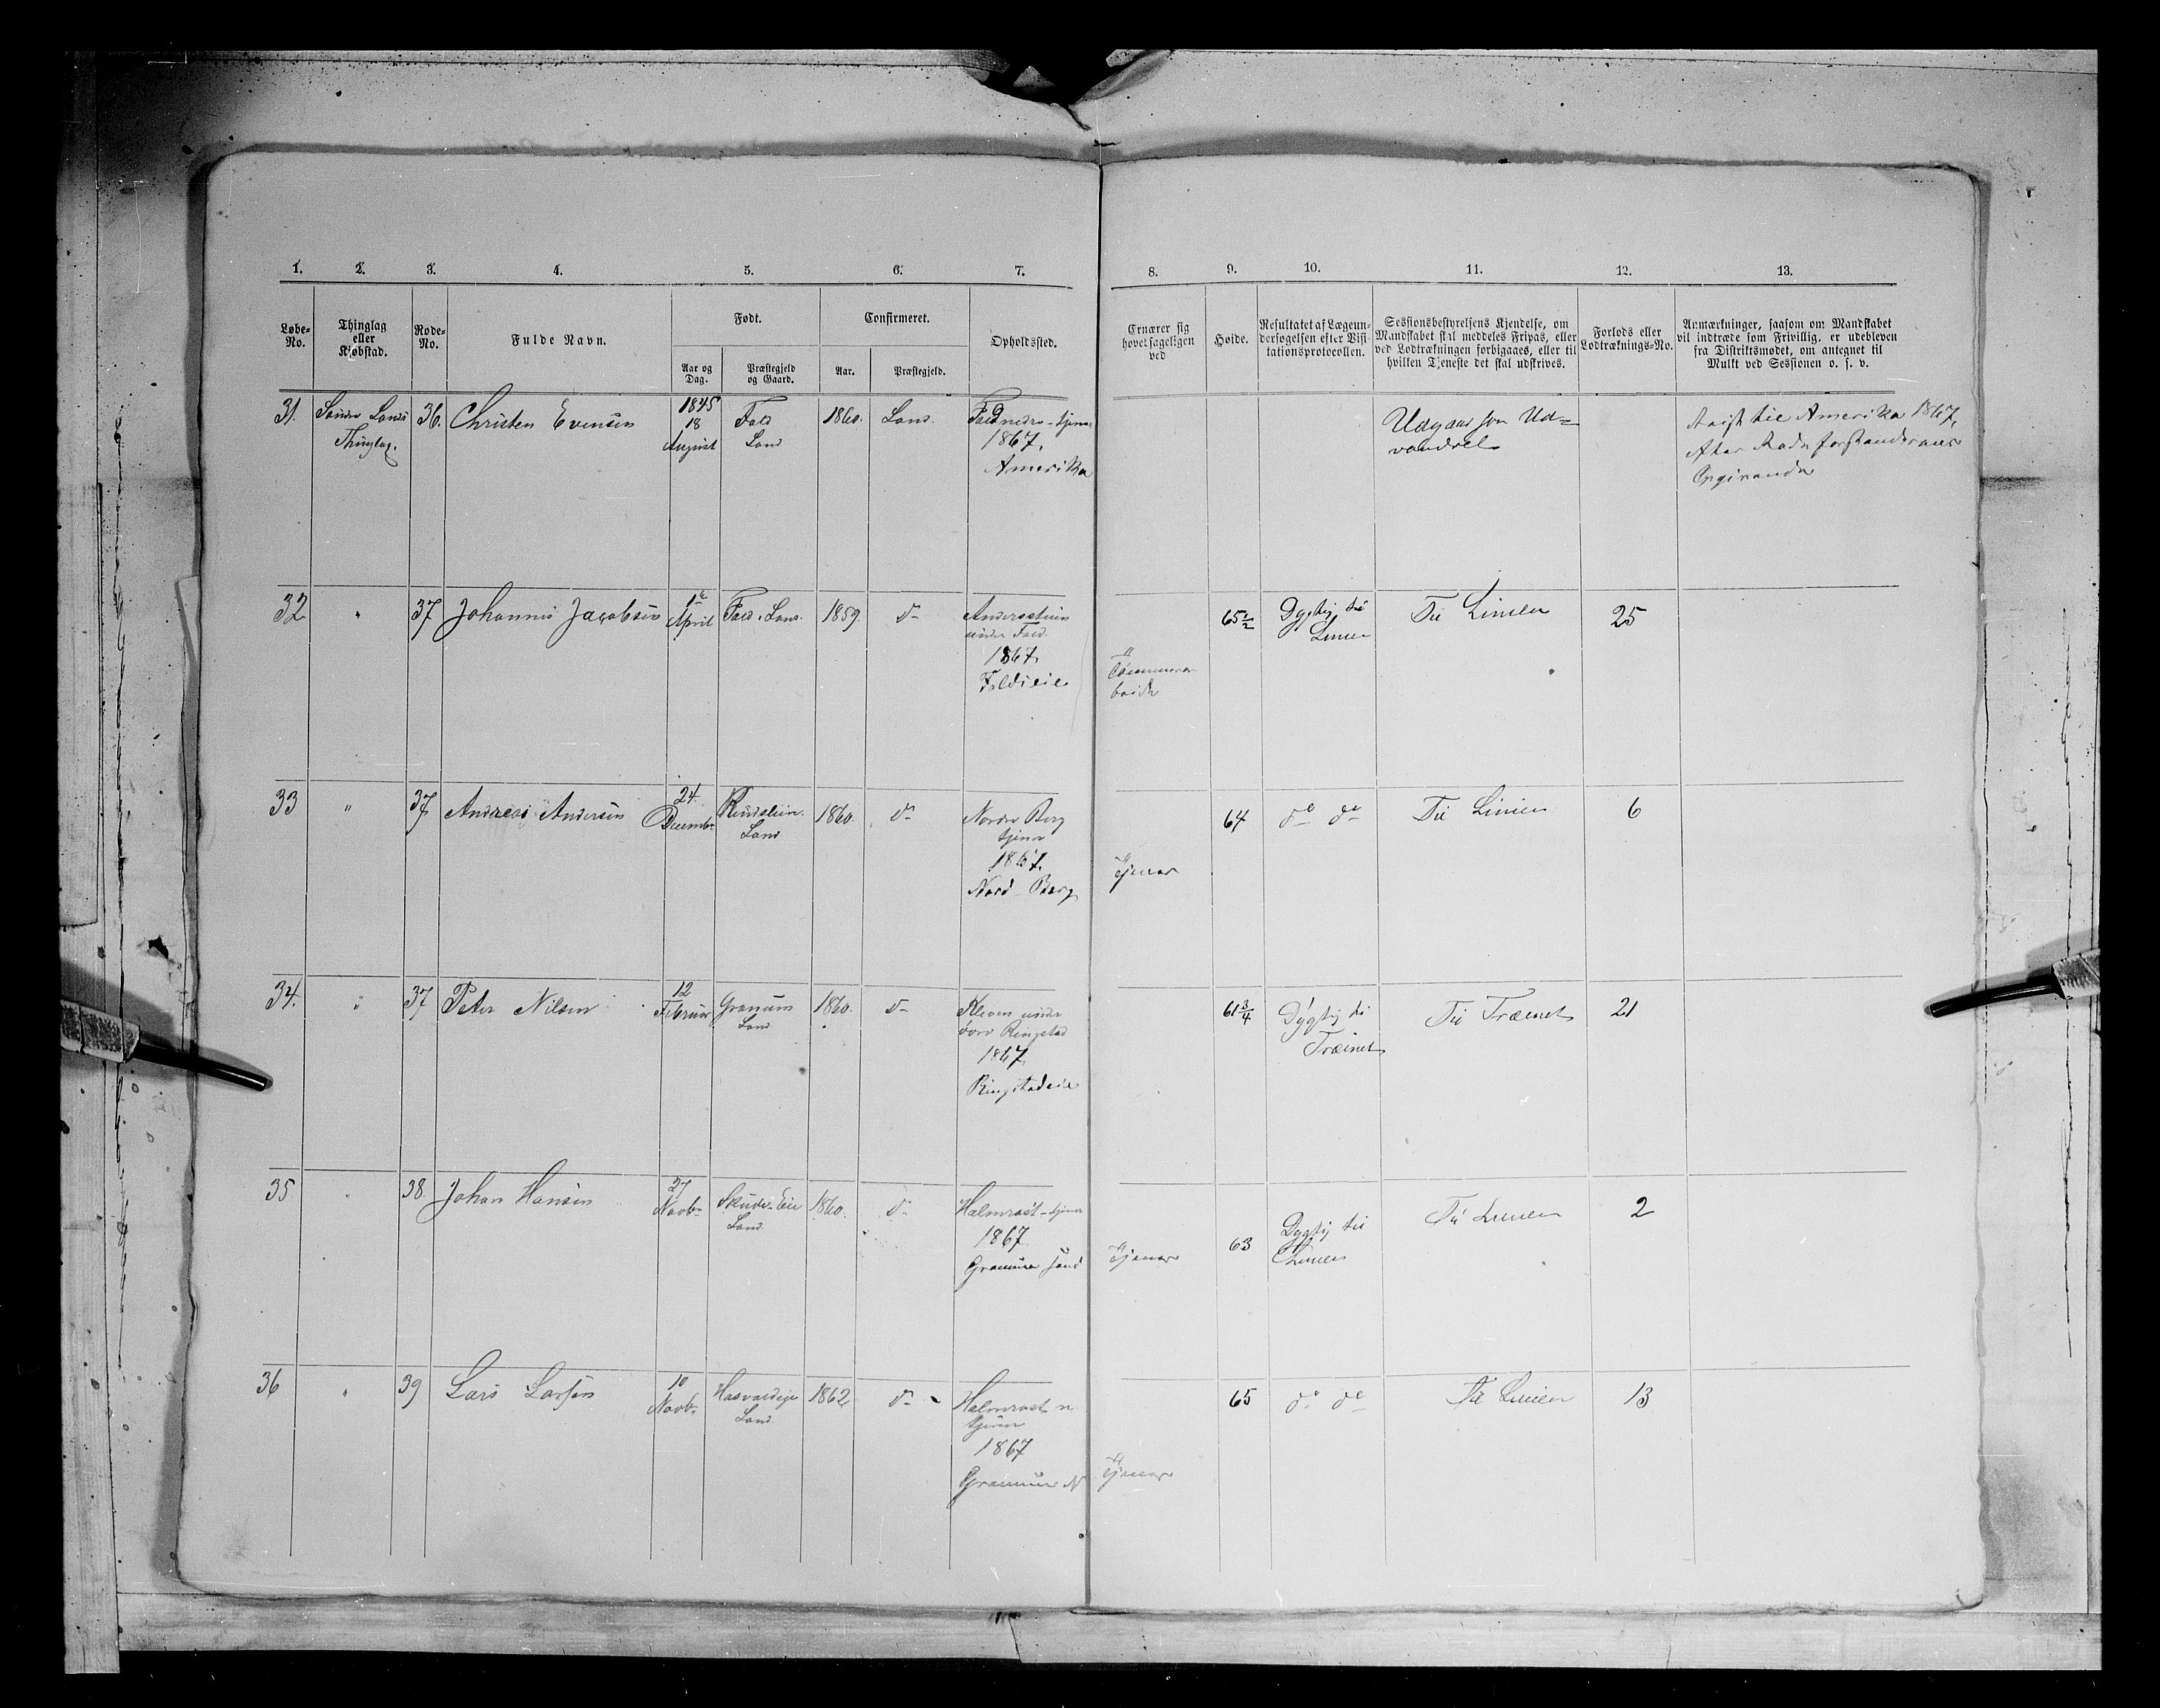 1. 2. 3. 4. 5. 6. 7. 8. 9. 10. 11. 12. 13.
Løbe-No.
Thinglag eller Kjøbstad.
Rode-No.
Fulde Navn.
Født.
Aar og Dag.
Præstegjeld og Gaard.
Confirmeret.
Aar.
Præstegjeld.
Opholdssted.
Ernærer sig hovedsageligen ved
Høide.
Resultatet af Lægeundersøgelsen efter Visitationsprotocollen.
Sessionsbestyrelsens Kjendelse, om Mandskabet skal meddeles Fripas, eller ved Lodtrækningen forbigaaes, eller til hvilken Tjeneste det skal udskrives.
Forlods eller Lodtræknings-No.
Anmærkninger, saasom om Mandskabet vil indtræde som Frivillig, er udebleven fra Distriktsmødet, om antegnet til Mulkt ved Sessionen o. s. v.
31. Søndre Lands 36. Christen Evensen 1845 Fald 1860. Land. Fald nedre - tjener Udgaar som Ud= Reist til Amerika 1867,
Thinglag. 18 August Land 1867. vandret efter Rodeforstanderens
Amerika Opgivende
32 " 37 Johannes Jacobsen 1e April Fald. Land. 1859. do 65½ Dygtig til Linien Til Linien 25
under Fald.
1867.
Faldseie
33 " 37 Andreas Andersen 24 Decembr Land 1860. do Nordre Berg 64 do do Til Linien 6
tjener
1867.
Nord Berg Tjener
34. " 37 Peter Nilsen 12 Februar Granum 1860. do Kleven under 61¾ Dygtig til Trainet Til Trainet 21
Land Ringstad
1867
Ringstadeie
35 " 38. Johan Hansen 27 Novbr Eie 1860. do Halmrast - tjener 63 Dygtig til Linien Til Linien 2
Land 1867
Tjener
36 " 39 Lars Larsen 10 Novbr 1862 do Halmrast n. 65 do do Til Linien 13
Land tjener
1867
N Tjener